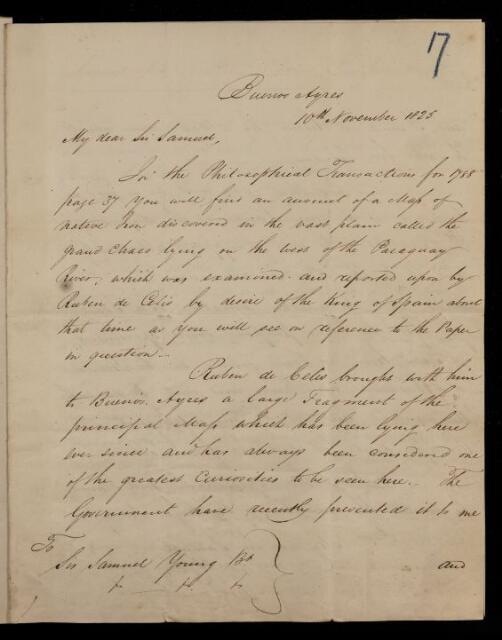 17
Buenos Ayres
10th November 1825
My dear Sir Samuel,
In the Philosophical Transactions for 1788
page 37 You will find an account of a Mass of
native Iron discovered in the vast plain called the
grand Chaco lying on the West of the Paraguay
River, which was examined and reported upon by
Ruben de Celis by desire of the King of Spain about
that time as you will see on reference to the Paper
in question.—
Ruben de Celis brought with him
to Buenos Ayres a large Fragment of the
principal Mass which has been lying here
ever since and has always been considered one
of the greatest Curiosities to be seen here. The
Government have recently presented it to me
To
Sir Samuel Young Bt
and